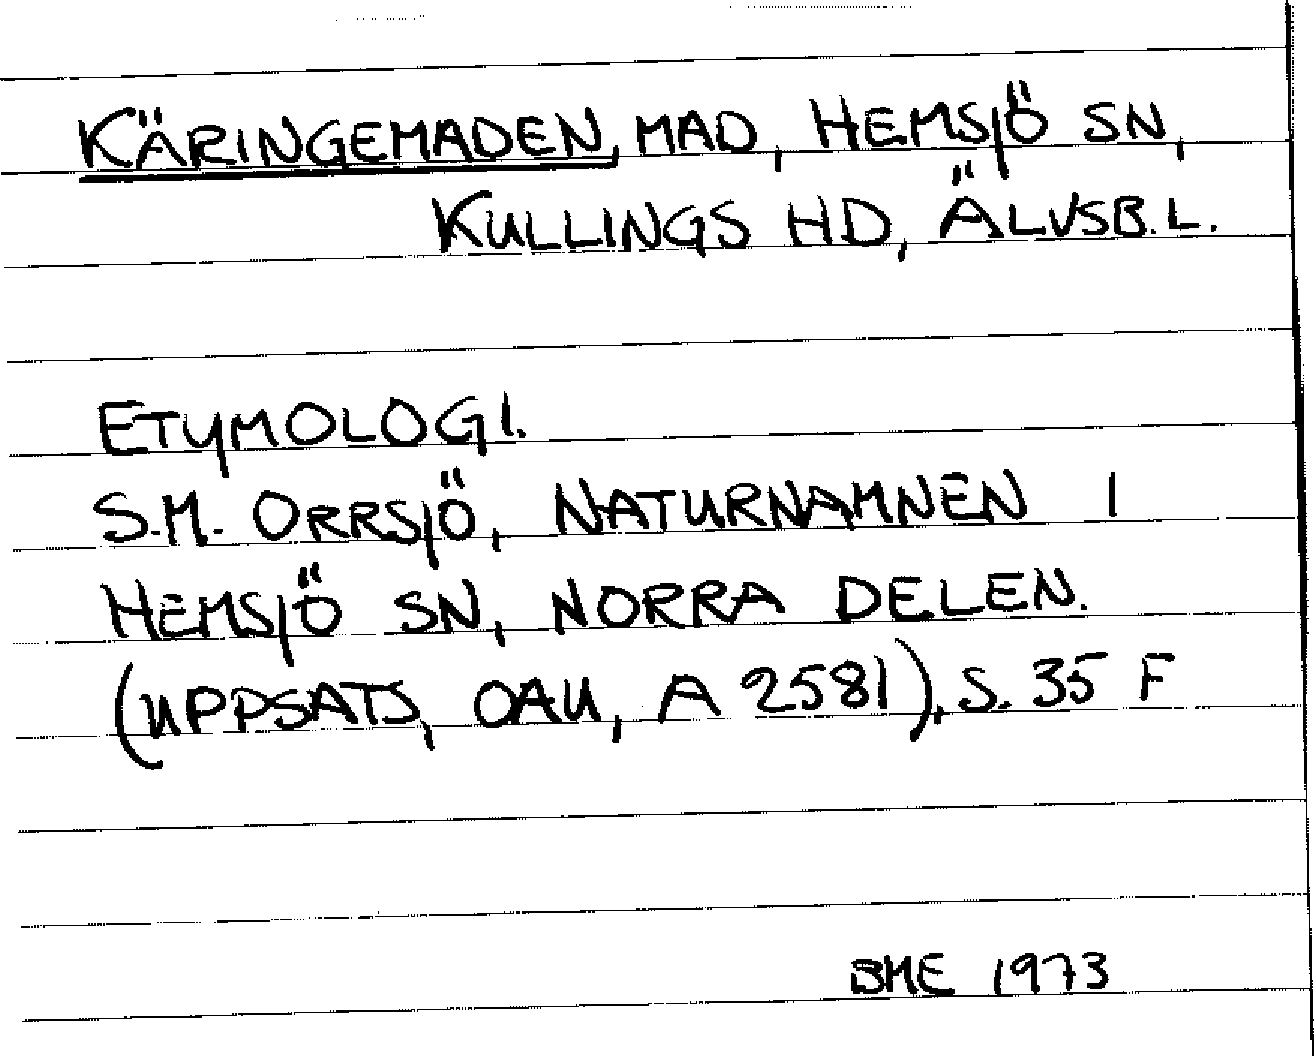 KÄRINGEMADEN, MAD, HEMSJÖ SN,
KULLINGS HD, ÄLVSB. L.
ETYMOLOGI.
S.M. ORRSJÖ, NATURNAMNEN I
HEMSJÖ SN, NORRA DELEN.
(UPPSATS, OAU, A 2581), S. 35 F
BME 1973